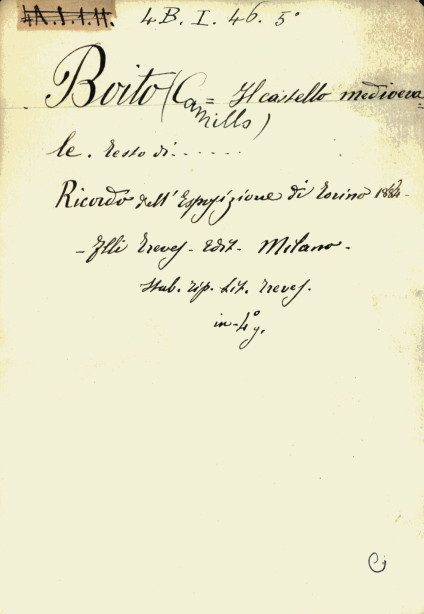 4A.I.1.11. 4.B.I.46.5°
Boito (Camillo) = Il castello medioeva=
le. Testo di......
Ricordo dell'Esposizione di Torino 1884.
- Flli Treves - Edit. Milano -
Stab. Tip. Lit. Treves.
in-4° g.